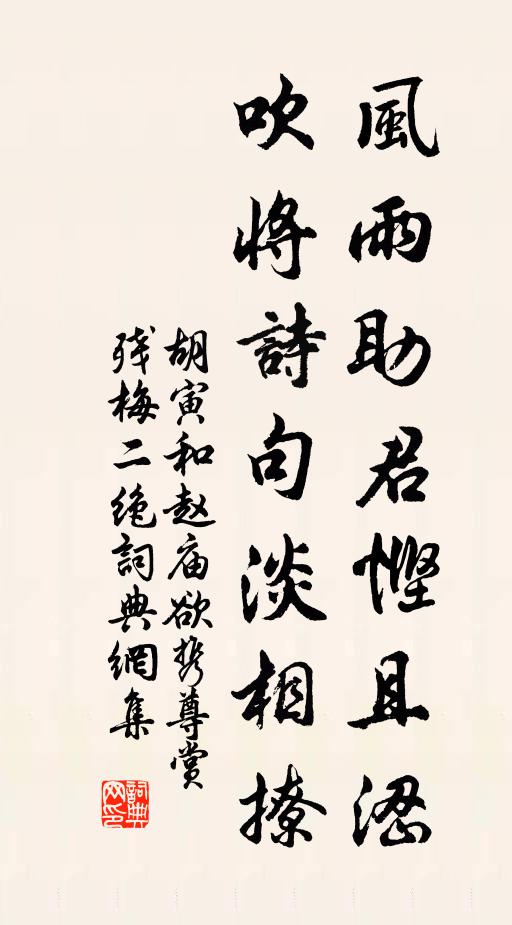 風雨助君慳且澀
吹將詩句淡相撩
胡寅和赵庙欲携尊赏
残梅二绝詞典網集
詞典网印